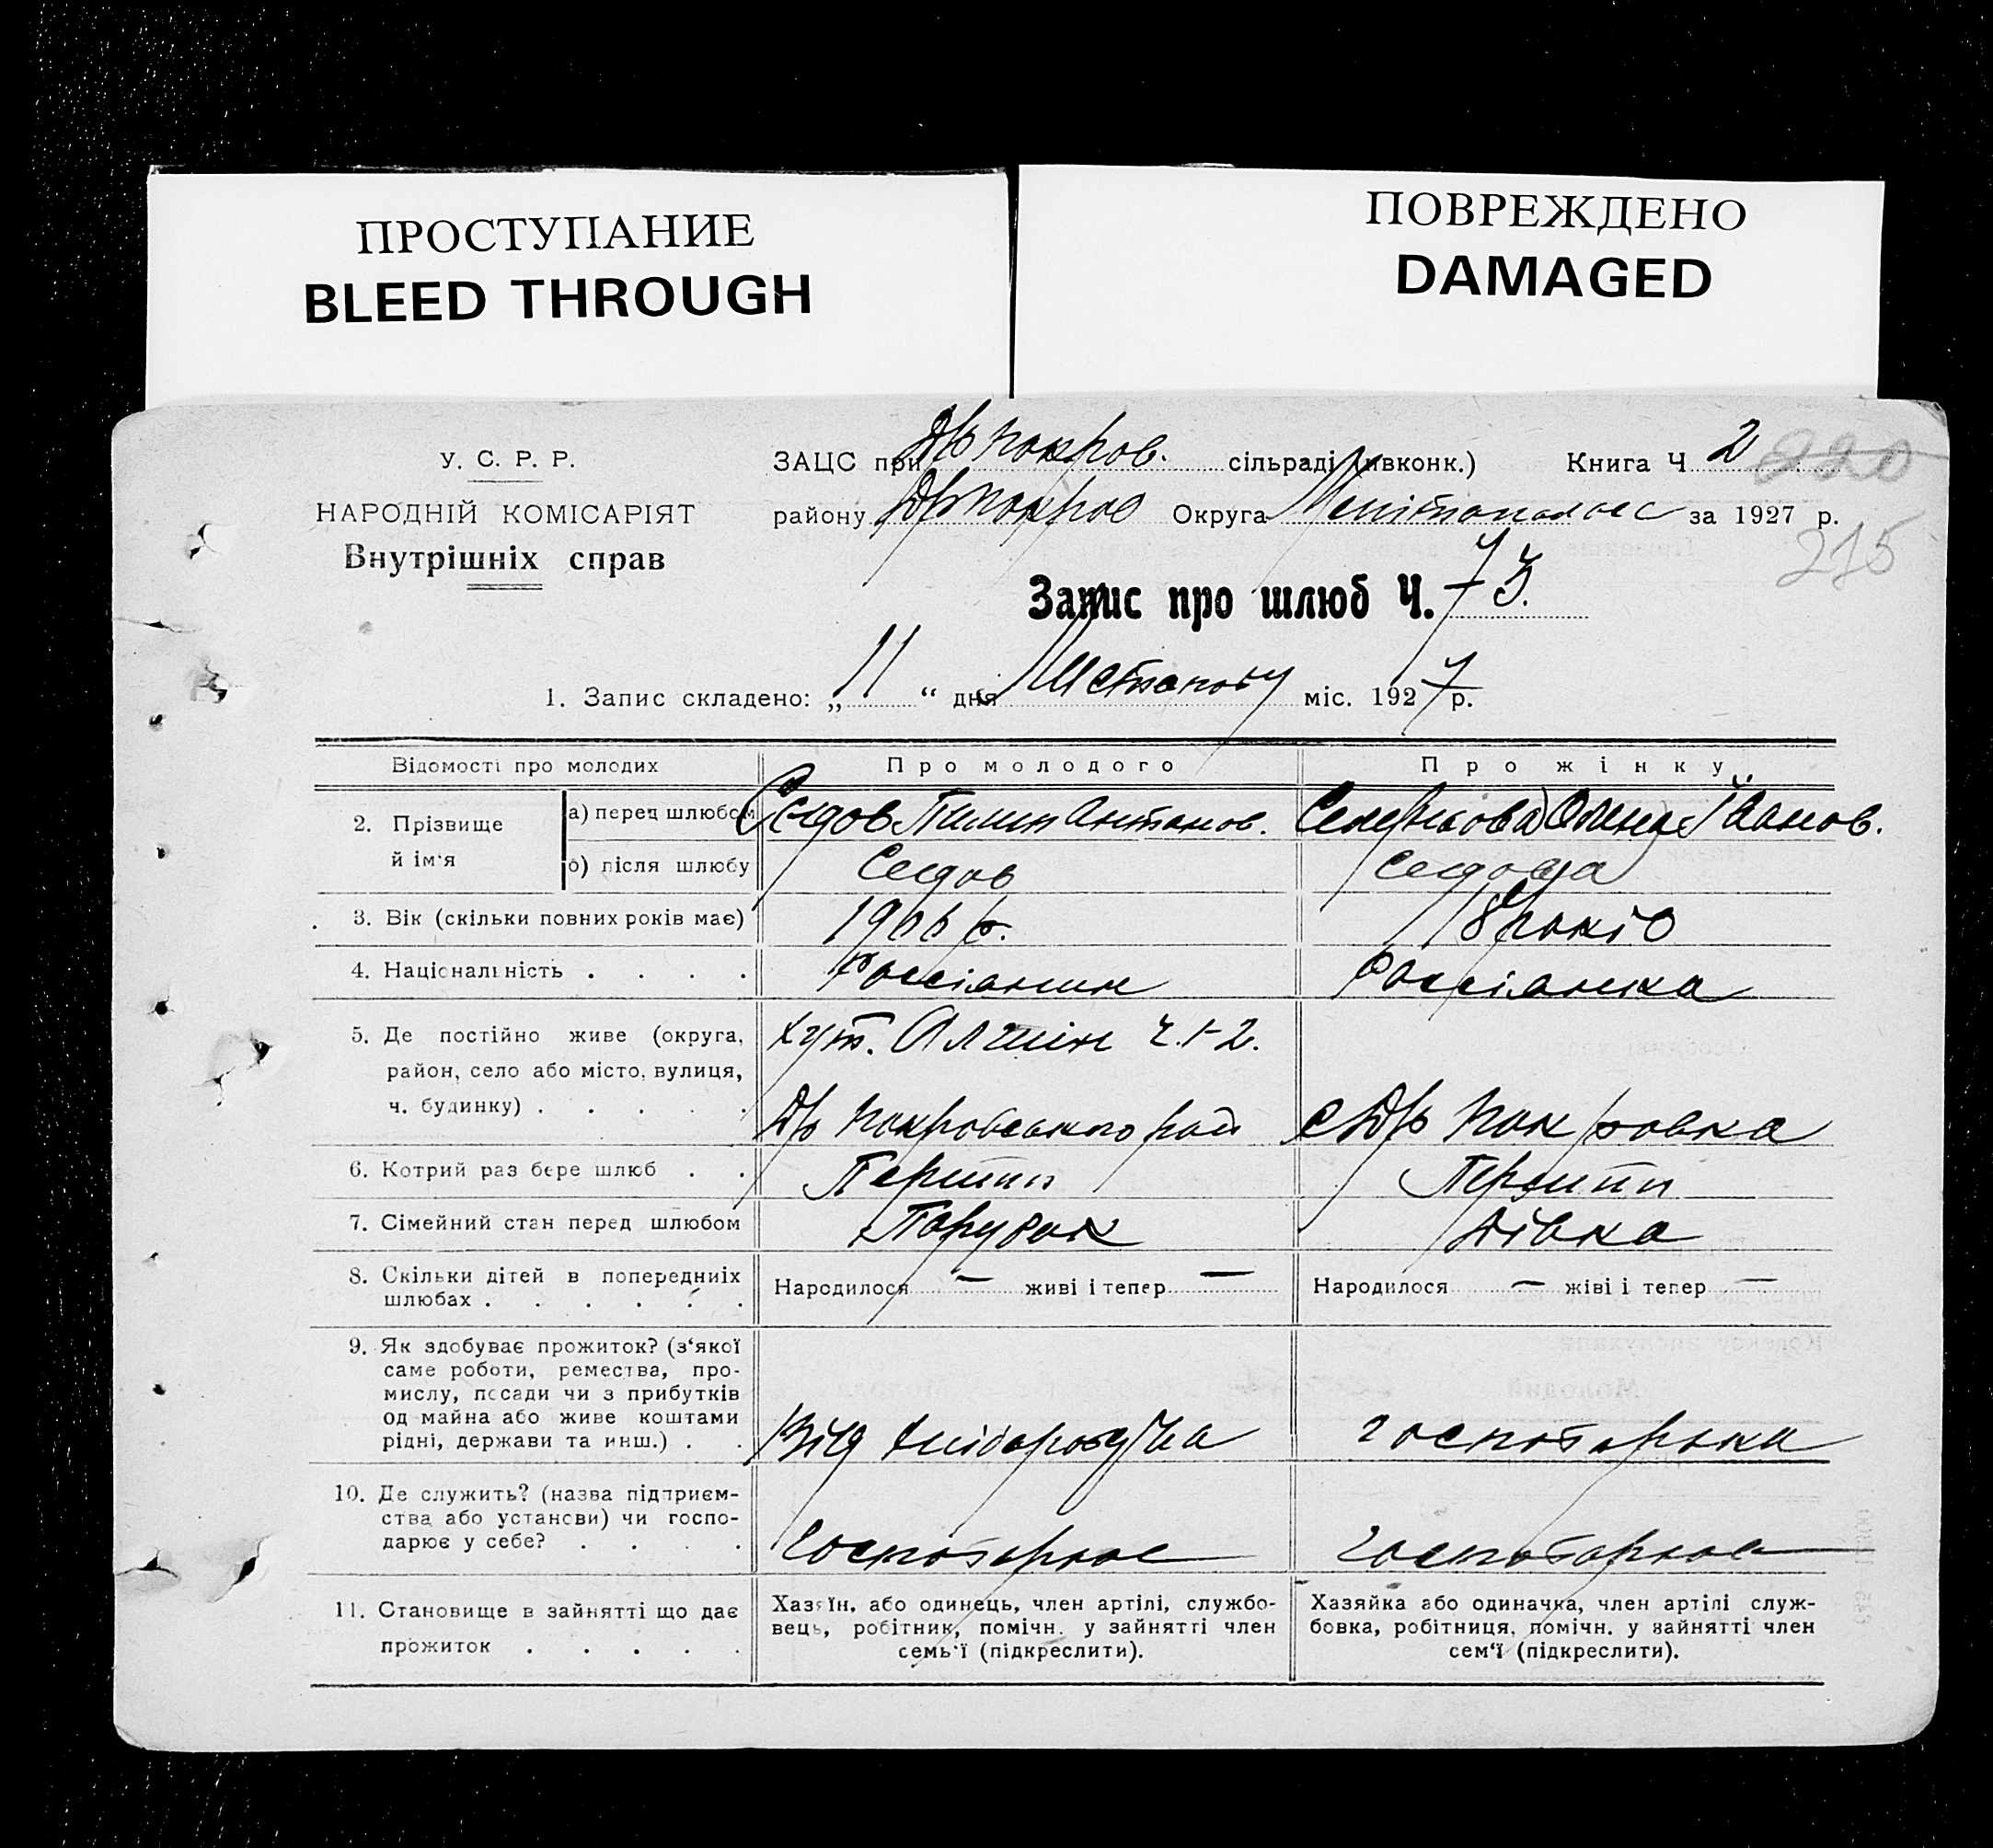 ПРОСТУПАНИЕ
BLEED THROUGH
ПОВРЕЖДЕНО
DAMAGED
У. С. Р. Р.
НАРОДНІЙ КОМІСАРІЯТ
Внутрішніх справ
ЗАЦС при Др Покров. сільраді (ивконк.) Книга Ч 2 220
району Др Покров Округа за 1927 р.
215
Запис про шлюб Ч. 73.
1. Запис складено: „ 11 “ дня міс. 1927 р.
Відомості про молодих
Про молодого
Про жінку
2. Прізвище й ім‘я
а) перед шлюбом
Сєдов Пилип Антонов.
Олена Іванов.
б) після шлюбу
Сєдов
Сєдова
3. Вік (скільки повних років має)
1906 р.
18 років
4. Національність . . . .
Россіянин
Россіянка
5. Де постійно живе (округа,
район, село або місто, вулиця,
ч. будинку) . . . . .
хут. ч. 1-2.
Др Покровського рай
с Др Покровка
6. Котрий раз бере шлюб . .
Перший
Перший
7. Сімейний стан перед шлюбом
Парубок
Дівка
8. Скільки дітей в попередниіх
шлюбах . . . . . .
Народилося — живі і тепер —
Народилося — жіві і тепер —
9. Як здобуває прожиток? (з‘якої
саме роботи, ремества, про-
мислу, посади чи з прибутків
од майна або живе коштами
рідні, держави та инш.) . .
Від хліборобства
10. Де служить? (назва підприєм-
ства або установи) чи госпо-
дарює у себе? . . . .
11. Становище в зайнятті що дає
прожиток . . . . .
Хазяїн, або одинець, член артілі, службо-
вець, робітник, помічн. у зайнятті член
семь‘ї (підкреслити).
Хазяйка або одиначка, член артілі служ-
бовка, робітниця, помічн. у зайнятті член
сем‘ї (підкреслити).